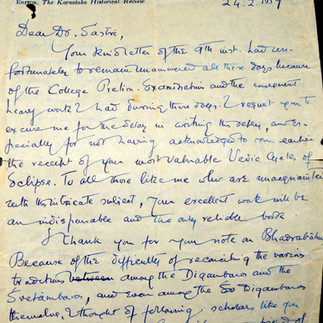 EDITOR, The Karnataka Historical Review
24.2.1937
Dear Dr. Sastri,
Your kind letter of the 9th inst. had un-
fortunately to remain unanswered all these days because
of the College Prelim. Examination and the consequent
heavy work I had during those days. I request you to
excuse me for the delay in writing this reply, and es-
pecially for not having acknowledged to you earlier
the receipt of your most valuable Vedic Cycle of
Eclipse. To all those like me who are unacquainted
with the intricate subject, your excellent work will be
an indispensable and the only reliable book.
I thank you for your note on Bhadrabahu.
Because of the difficulty of reconciling the various
traditions between among the Digambaras and the
Svetambaras, and even among the Digambaras
themselves, I thought of following scholars like you